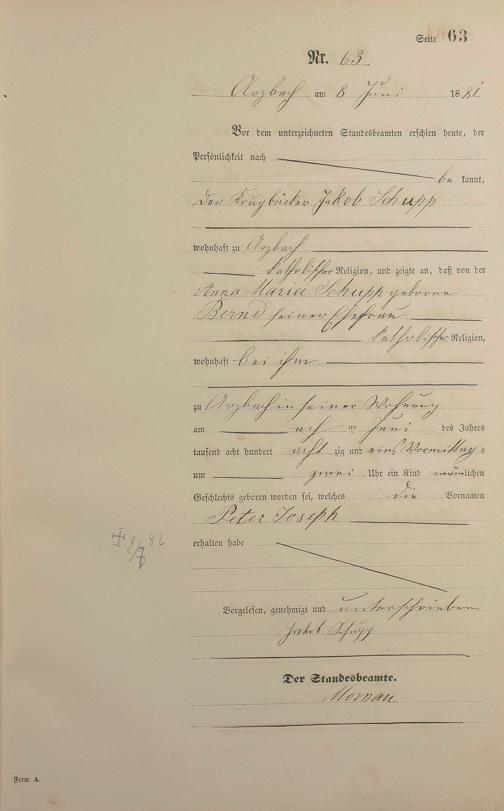 Seite 63
Nr. 63.
Arzbach am 8 Juni 1881
Vor dem unterzeichneten Standesbeamten erschien heute, der
Persönlichkeit nach
be kannt,
der Krugbäcker Jakob Schupp
wohnhaft zu Arzbach
katholischer Religion, und zeigte an, daß von der
Anna Maria Schupp geborene
Bernd seiner Ehefrau
katholischer Religion,
wohnhaft bei ihm
zu Arzbach in seiner Wohnung
am ach im Juni des Jahres
tausend acht hundert acht zig und eins Vormittag s
um zwei Uhr ein Kind männlichen
Geschlechts geboren worden sei, welches die Vornamen
Peter Joseph
erhalten habe
Vorgelesen, genehmigt und unterschrieben
Jakob Schupp
Der Standesbeamte.
Mornau
Form. A.